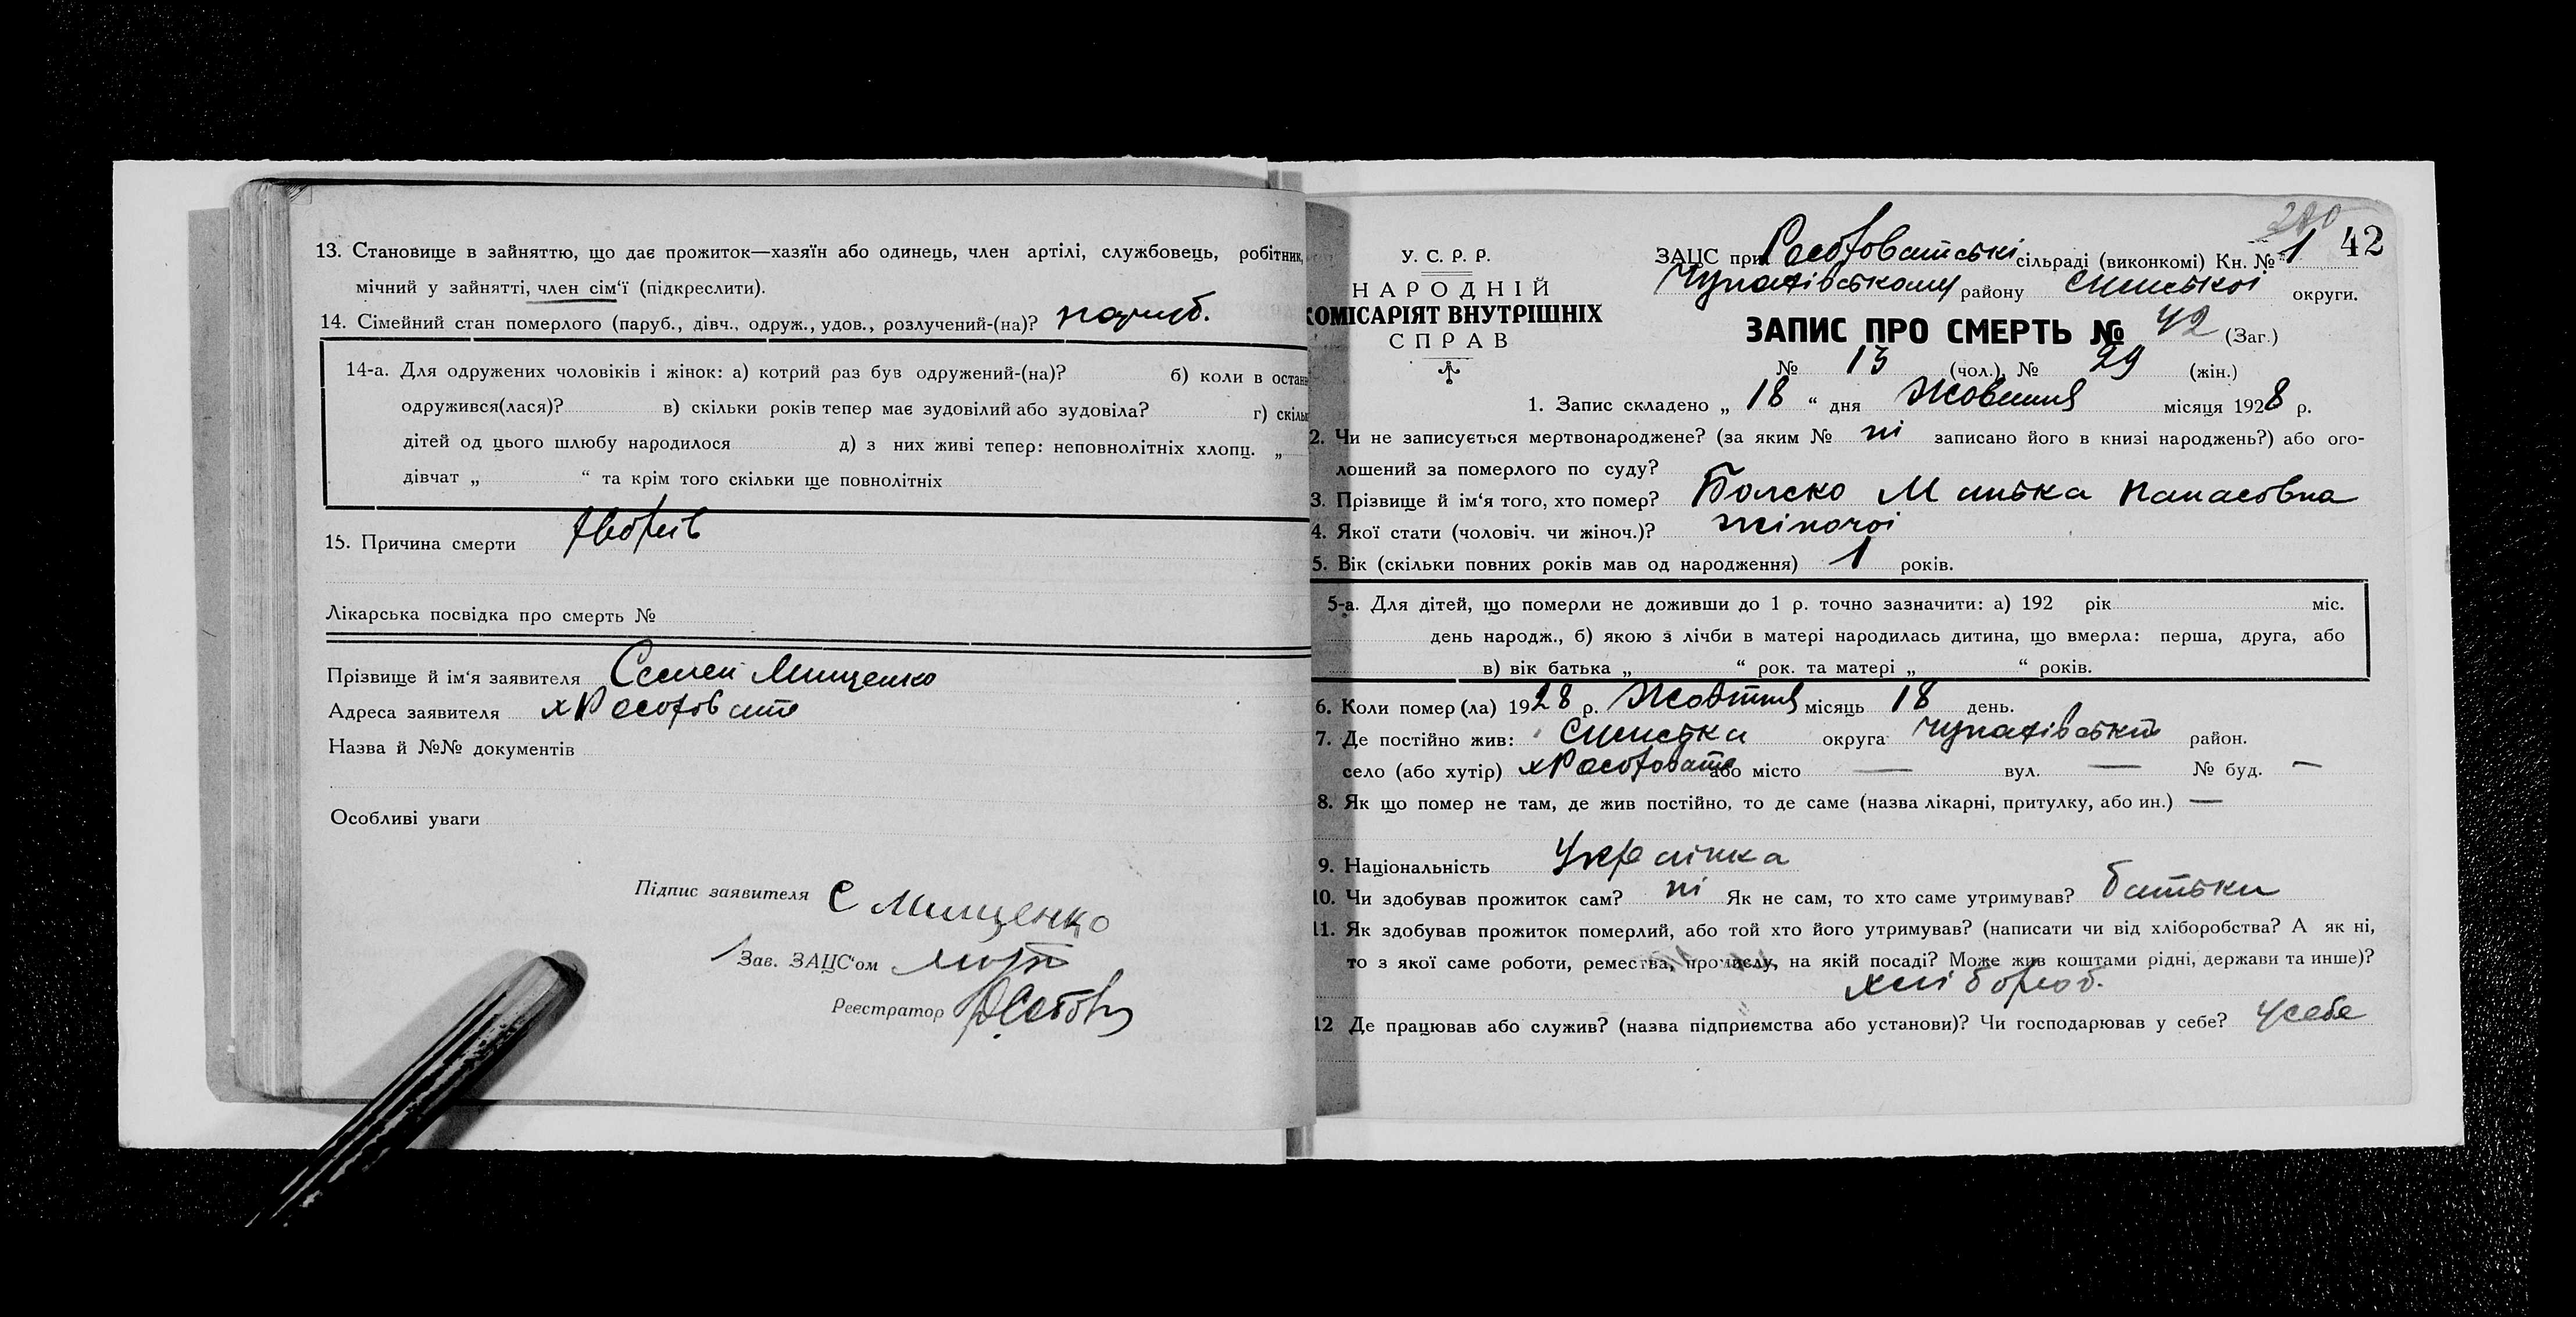 13. Становище в зайняттю, що дає прожиток—хазяїн або одинець, член артілі, службовець, робітник,
мічний у зайнятті, член сім‘ї (підкреслити).
14. Сімейний стан померлого (паруб., дівч., одруж., удов., розлучений-(на)? паруб.
14-а. Для одружених чоловіків і жінок: а) котрий раз був одружений-(на)? б) коли в остан
одружився(лася)? в) скільки років тепер має зудовілий або зудовіла? г) скіль
дітей од цього шлюбу народилося д) з них живі тепер: неповнолітніх хлопц. „
дівчат „ “ та крім того скільки ще повнолітніх
15. Причина смерти
Лікарська посвідка про смерть №
Прізвище й ім‘я заявителя Семен Мищенко
Адреса заявителя
Назва й №№ документів
Особливі уваги
Підпис заявителя С Мищенко
Зав. ЗАЦС‘ом
Реєстратор
280
У. С. Р. Р.
НАРОДНІЙ
КОМІСАРІЯТ ВНУТРІШНІХ
СПРАВ
ЗАЦС при сільраді (виконкомі) Кн. № 1 42
району Сумської округи.
ЗАПИС ПРО СМЕРТЬ № 42 (Заг.)
№ 13 (чол.), № 29 (жін.)
1. Запис складено „ 18 “ дня Жовтня місяця 1928 р.
2. Чи не записується мертвонароджене? (за яким № ні записано його в книзі народжень?) або ого-
лошений за померлого по суду?
3. Прізвище й ім‘я того, хто помер? Панасовна
4. Якої стати (чоловіч. чи жіноч.)? жіночої
5. Вік (скільки повних років мав од народження) 1 років.
5-а. Для дітей, що померли не доживши до 1 р. точно зазначити: а) 192 рік міс.
день народж., б) якою з лічби в матері народилась дитина, що вмерла: перша, друга, або
в) вік батька „ “ рок. та матері „ “ років.
6. Коли помер(ла) 1928 р. Жовтня місяць 18 день.
7. Де постійно жив: Сумська округа район.
село (або хутір) або місто — вул. — № буд. —
8. Як що помер не там, де жив постійно, то де саме (назва лікарні, притулку, або ин.) —
9. Національність Українка
10. Чи здобував прожиток сам? ні Як не сам, то хто саме утримував? батьки
11. Як здобував прожиток померлий, або той хто його утримував? (написати чи від хліборобства? А як ні,
то з якої саме роботи, ремества, промислу, на якій посаді? Може жив коштами рідні, держави та инше)?
хлібороб.
12 Де працював або служив? (назва підприємства або установи)? Чи господарював у себе? у себе